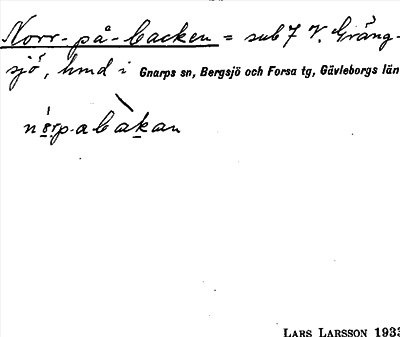 Norr-på-backen = sub 7 V. Gräng-
sjö, hmd i Gnarps sn, Bergsjö och Forsa tg, Gävleborgs län
LARS LARSSON 1933